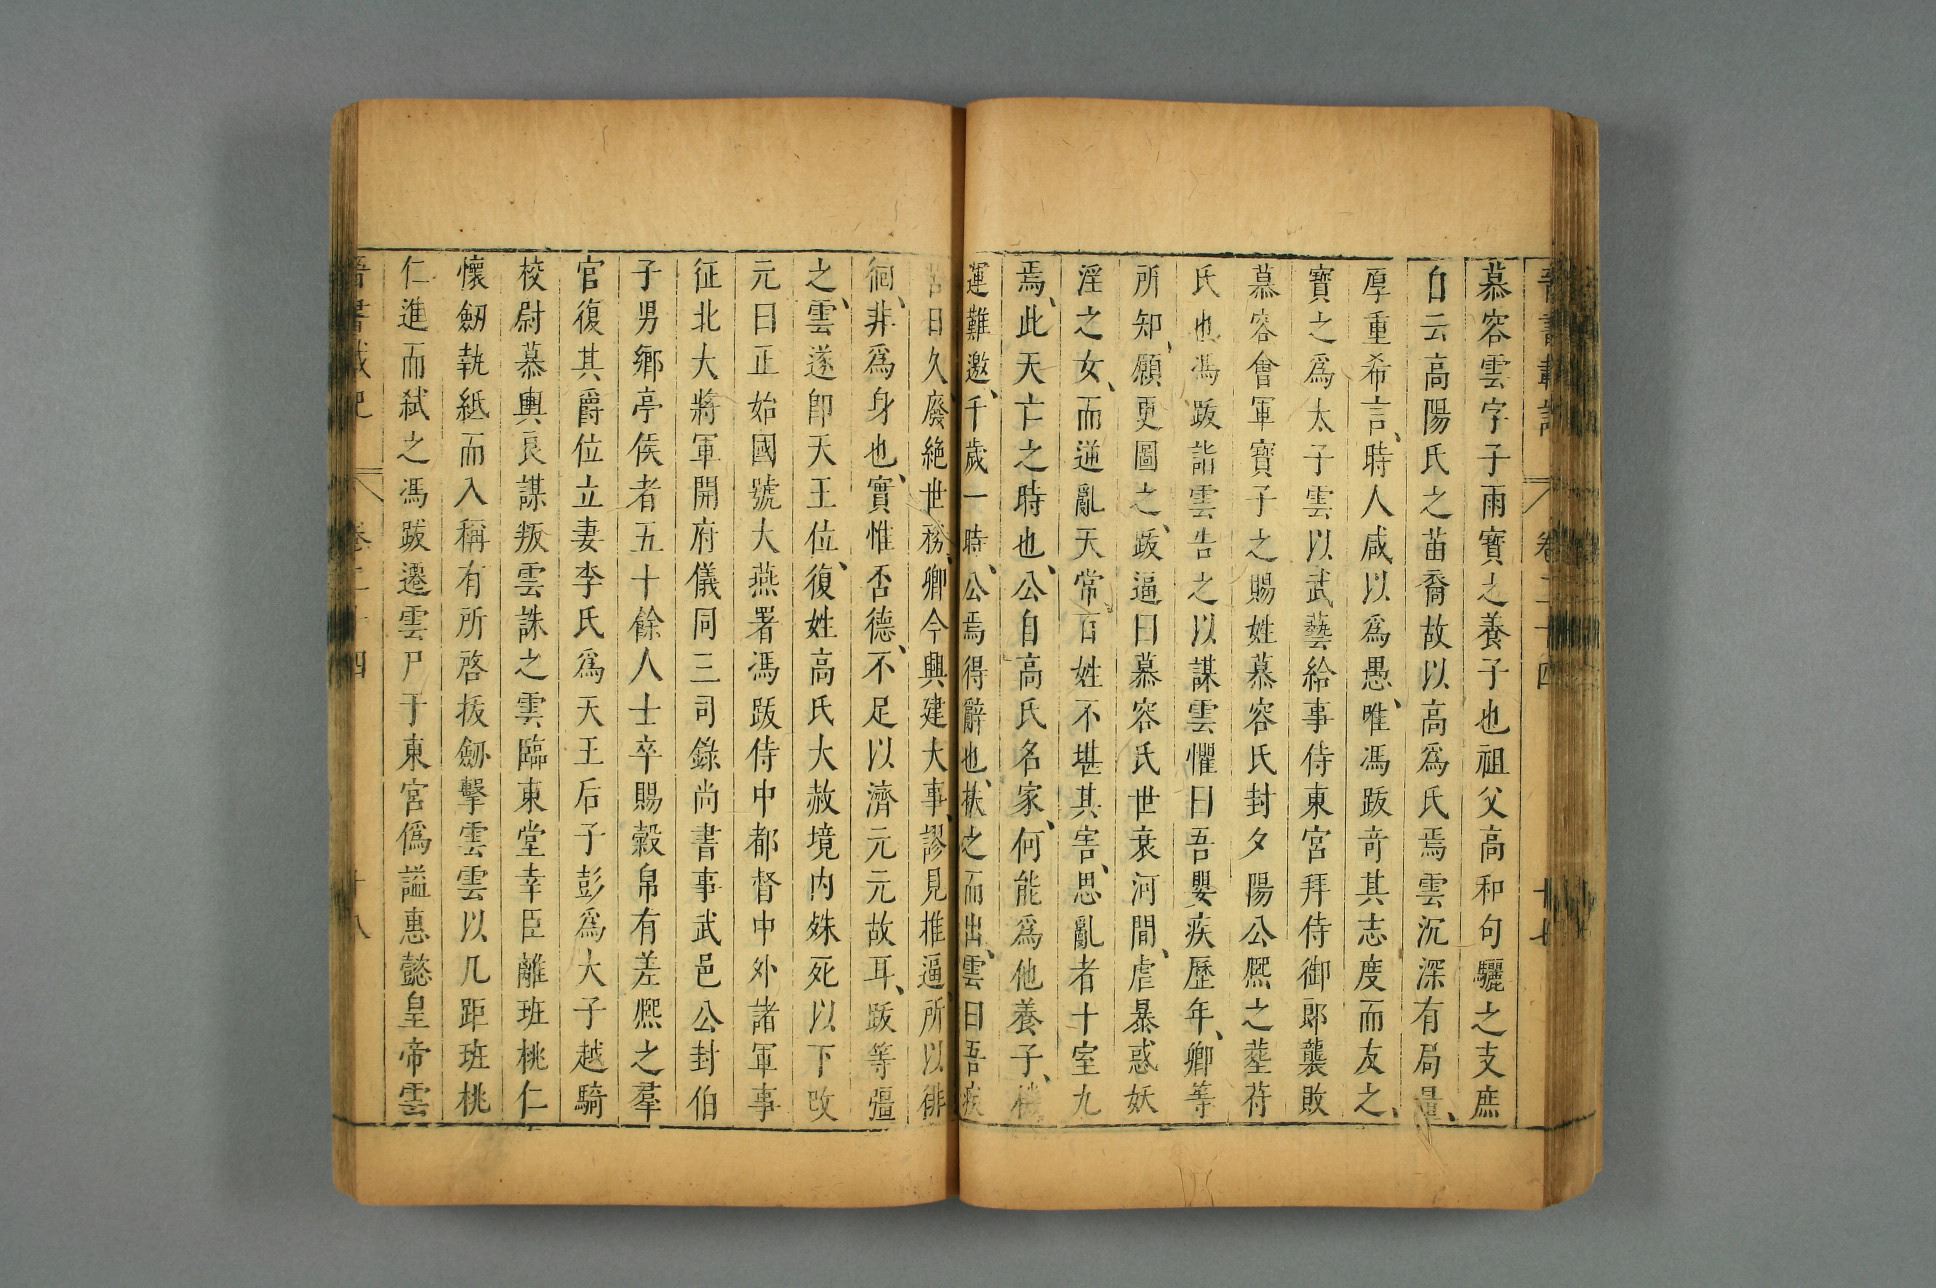 晉書載記 卷二十四 十七
慕容雲字子雨寶之養子也祖父高和句驪之支庶
自云高陽氏之苗裔故以高爲氏焉雲沉深有局量、
厚重希言、時人咸以爲愚、唯馮跋奇其志度而友之、
寶之爲太子雲以武藝給事侍東宮拜侍御郎襲敗
慕容會軍寶子之賜姓慕容氏封夕陽公熈之塟苻
氏也馮跋詣雲告之以謀雲懼曰吾嬰疾歷年、卿等
所知、願更圖之、跋逼曰慕容氏世衰河間、虐暴惑妖
淫之女、而逆亂天常、百姓不堪其害、思亂者十室九
焉、此天亡之時也、公自高氏名家、何能爲他養子、機
運難邀、千歲一時、公焉得辭也、扶之而出、雲曰吾疾
苦日久廢絶世務、卿今興建大事、謬見推逼所以徘
徊、非爲身也、實惟否德、不足以濟元元故耳、跋等彊
之、雲遂卽天王位、復姓高氏大赦境內殊死以下改
元曰正始國號大燕署馮跋侍中都督中外諸軍事
征北大將軍開府儀同三司錄尚書事武邑公封伯
子男鄉亭侯者五十餘人士卒賜穀帛有差熈之羣
官復其爵位立妻李氏爲天王后子彭爲大子越騎
校尉慕輿良謀叛雲誅之雲臨東堂幸臣離班桃仁
懷劒執紙而入稱有所啓拔劒擊雲雲以几距班桃
仁進而弒之馮跋遷雲尸于東宮僞謚惠懿皇帝雲
晉書載記 卷二十四 十八